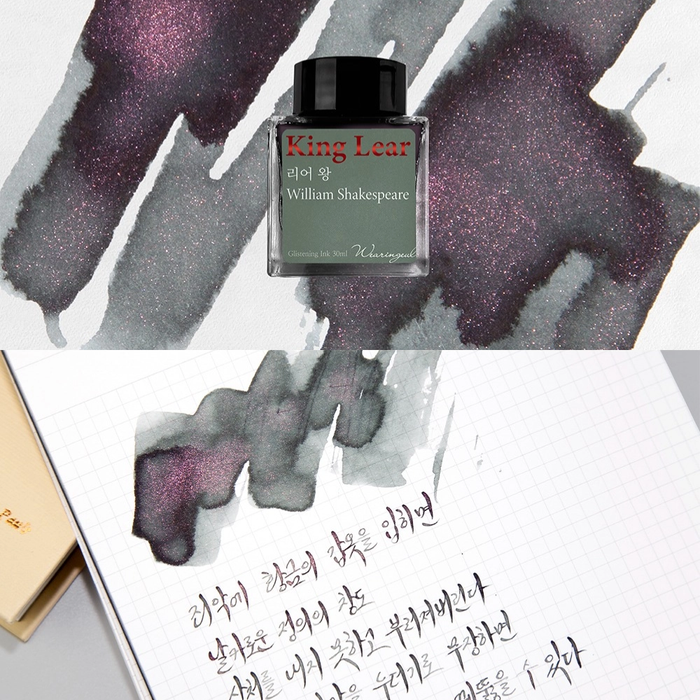 King Lear
리어 왕
William Shakespeare
Glistening Ink 30ml Wearingeul
Paul
죄악에 황금의 갑옷을 입히면
날카로운 정의의 창도
상처를 내지 못하고 부러져버린다
누더기로 무장하면
꿰뚫을 수 있다